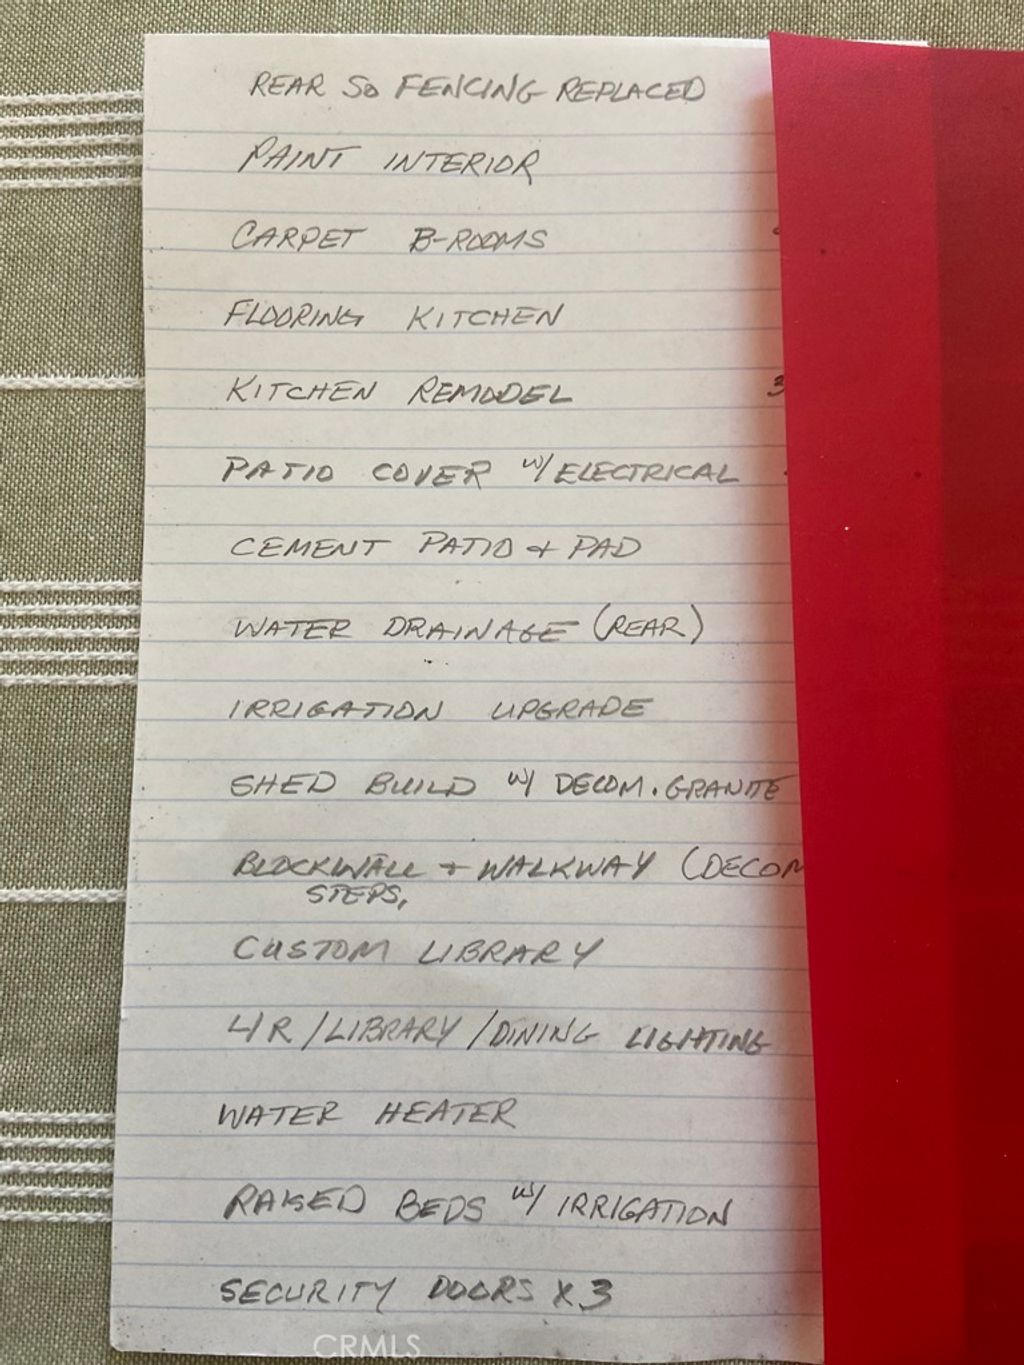 REAR SO FENCING REPLACED
PAINT INTERIOR
CARPET B-ROOMS
FLOORING KITCHEN
KITCHEN REMODEL 3
PATIO COVER W/ ELECTRICAL
CEMENT PATIO + PAD
WATER DRAINAGE (REAR)
IRRIGATION UPGRADE
SHED BUILD W/ DECOM. GRANITE
BLOCKWALL + WALKWAY (DECOM
STEPS,
CUSTOM LIBRARY
L/R / LIBRARY / DINING LIGHTING
WATER HEATER
RAISED BEDS W/ IRRIGATION
SECURITY DOORS X 3
CRMLS